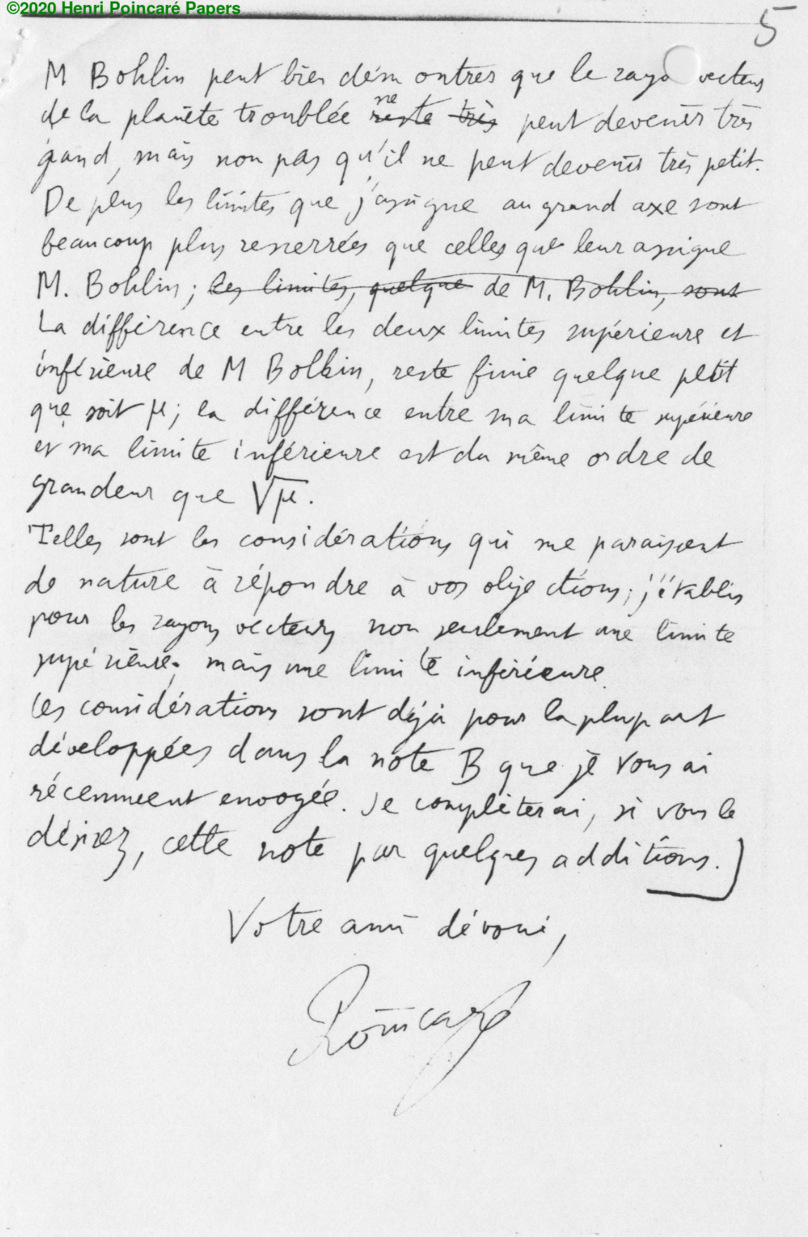 ©2020 Henri Poincaré Papers
5
M Bohlin peut bien démontrer que le rayon vecteur
de la planète troublée ne reste très peut devenir très
grand, mais non pas qu'il ne peut devenir très petit.
De plus les limites que j'assigne au grand axe sont
beaucoup plus resserrées que celles que leur assigne
M. Bohlin; les limites, quelque de M. Bohlin, sont
La différence entre les deux limites supérieure et
inférieure de M Bohlin, reste finie quelque petit
que soit μ; la différence entre ma limite supérieure
et ma limite inférieure est du même ordre de
grandeur que √μ.
Telles sont les considérations qui me paraissent
de nature à répondre à vos objections; j'établis
pour les rayons vecteurs non seulement une limite
supérieure, mais une limite inférieure.
Ces considérations sont déjà pour la plupart
développées dans la note B que je vous ai
récemment envoyée. Je complèterai, si vous le
désirez, cette note par quelques additions.]
Votre ami dévoué,
Poincaré